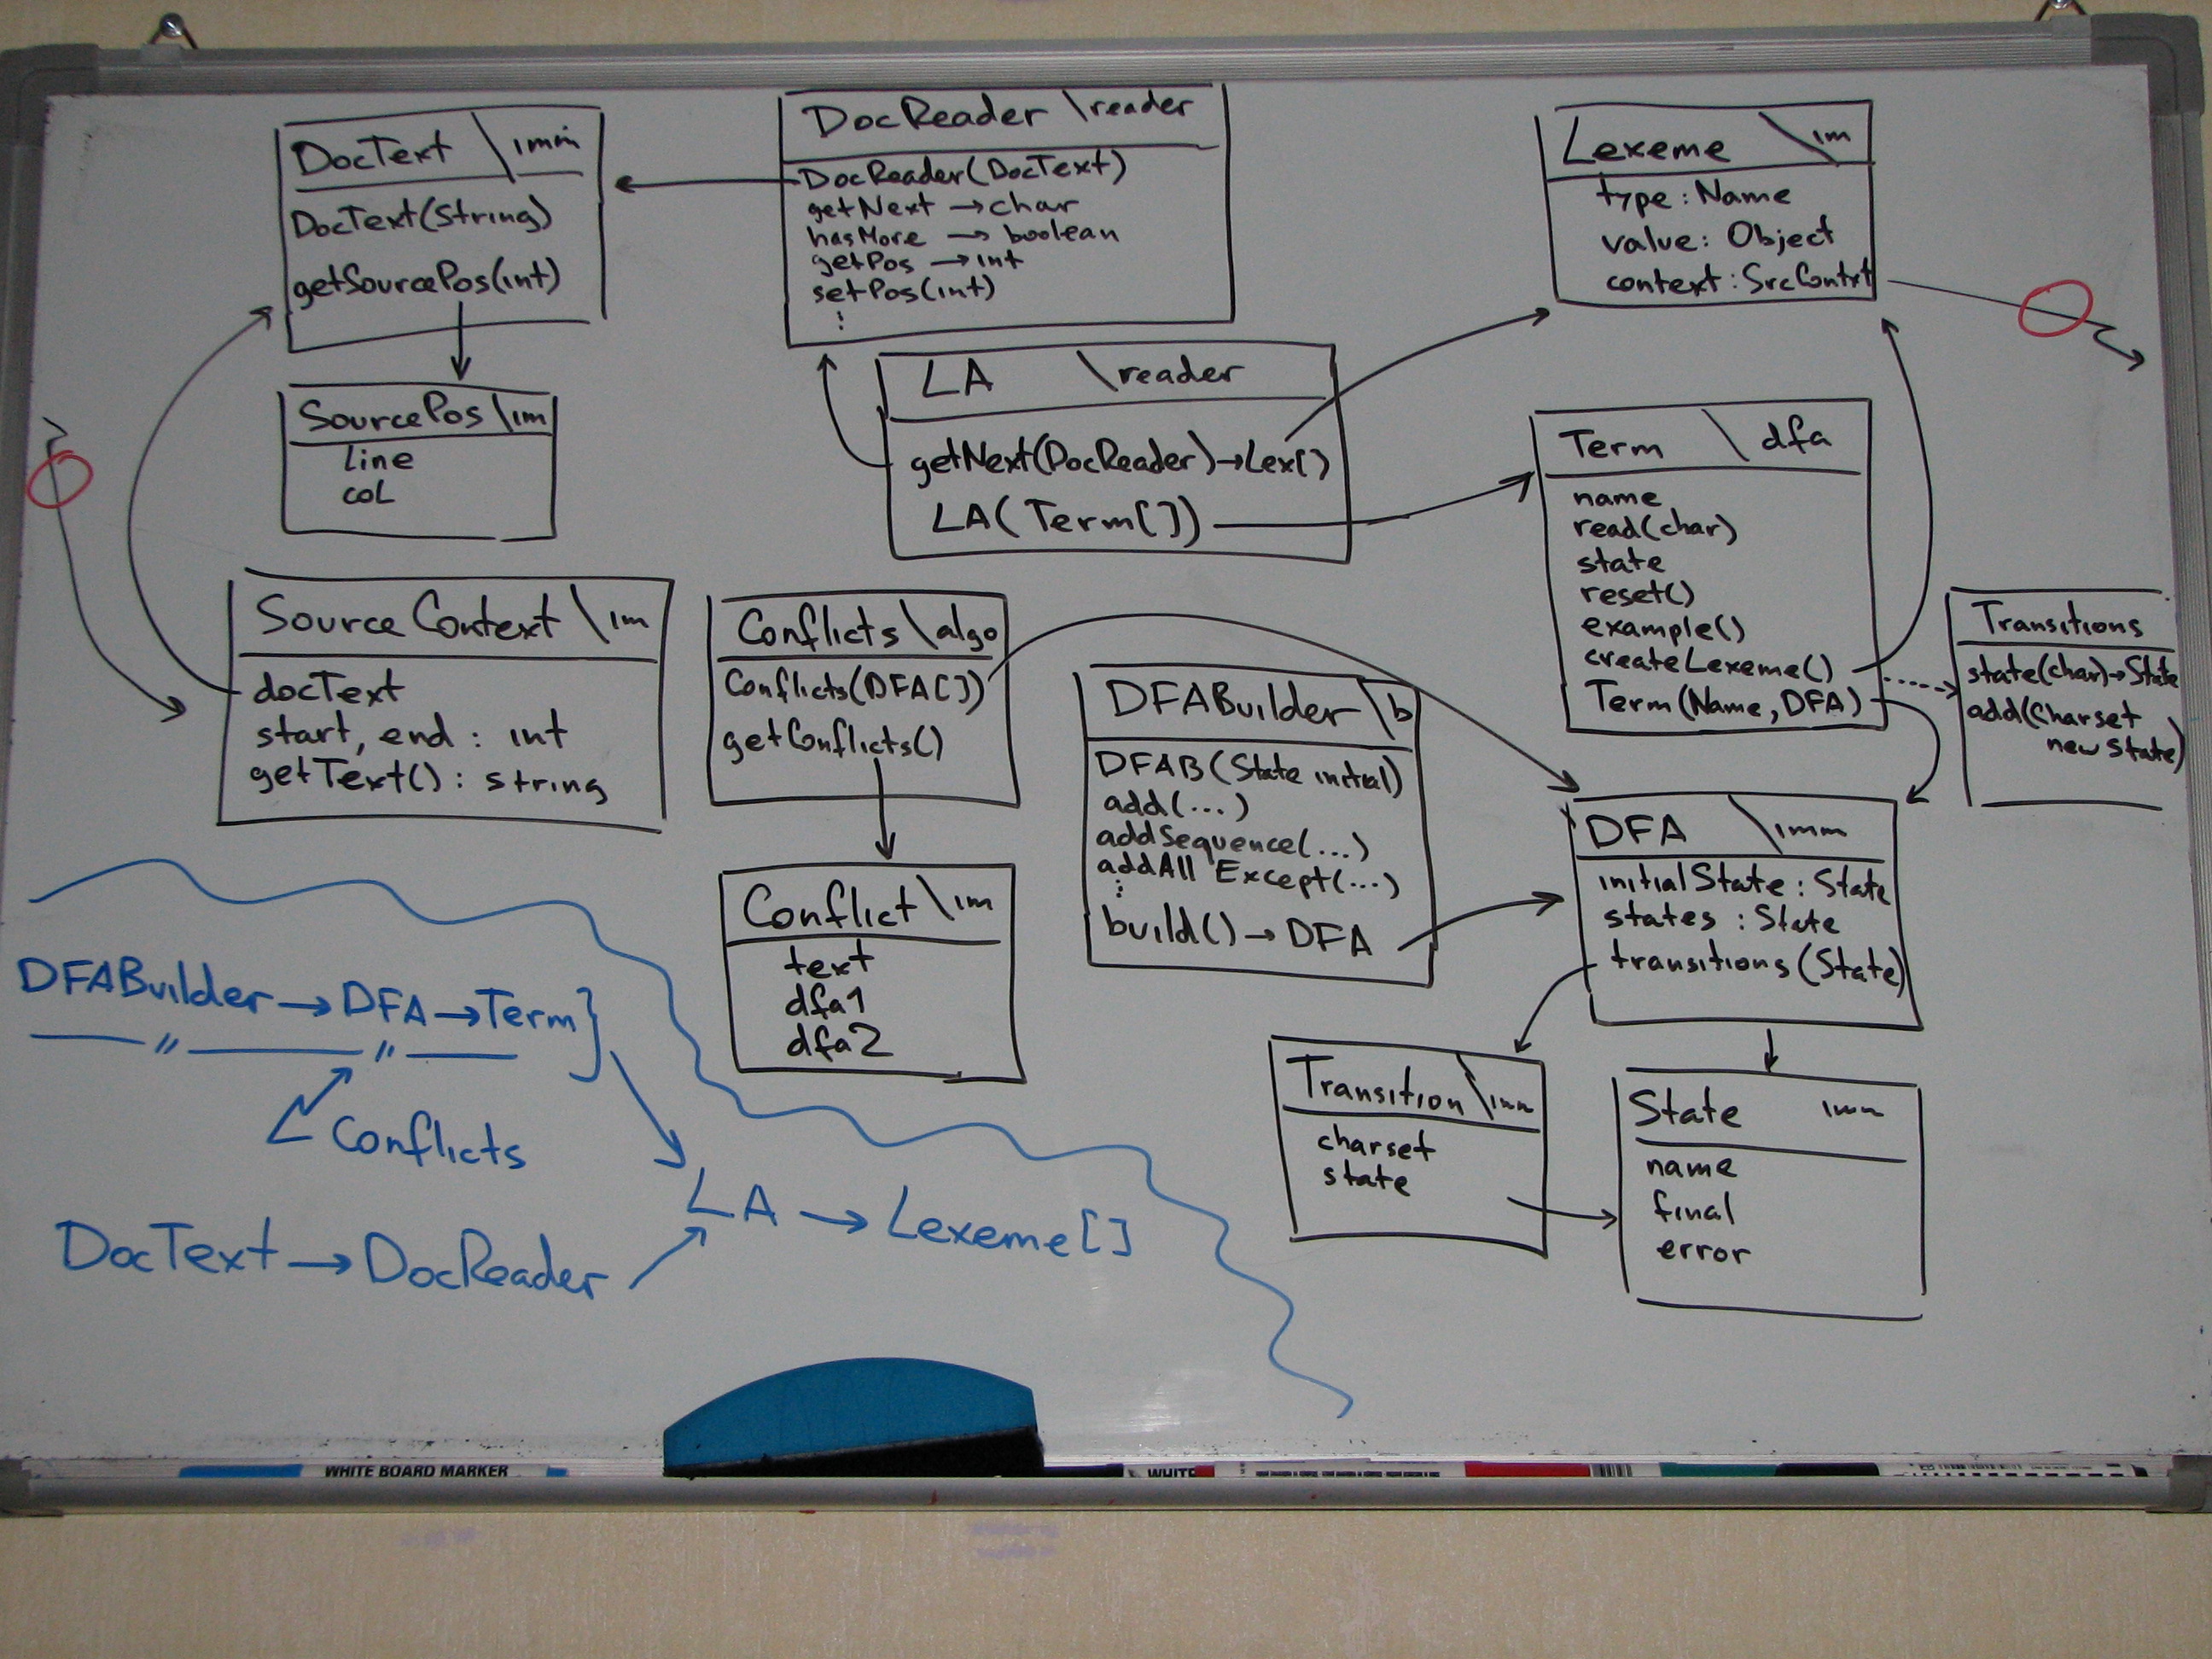 DocText \imm
DocText(String)
getSourcePos(int)
DocReader \reader
DocReader(DocText)
getNext → char
hasMore → boolean
getPos → int
setPos(int)
⋮
Lexeme \im
type : Name
value : Object
context : SrcContxt
SourcePos \im
line
col
LA \reader
getNext(DocReader) → Lex[]
LA(Term[])
Term \dfa
name
read(char)
state
reset()
example()
createLexeme()
Term(Name, DFA)
Transitions
state(char) → State
add(Charset
new State)
Source Context \im
docText
start, end : int
getText() : string
Conflicts \algo
Conflicts(DFA[])
getConflicts()
DFABuilder \b
DFAB(State initial)
add(...)
addSequence(...)
addAll Except(...)
⋮
build() → DFA
DFA \imm
initialState : State
states : State
transitions(State)
Conflict \im
text
dfa1
dfa2
Transition \imm
charset
state
State imm
name
final
error
DFABuilder → DFA → Term }
— " — " —
Conflicts
LA → Lexeme[]
DocText → DocReader
WHITE BOARD MARKER
WHITE